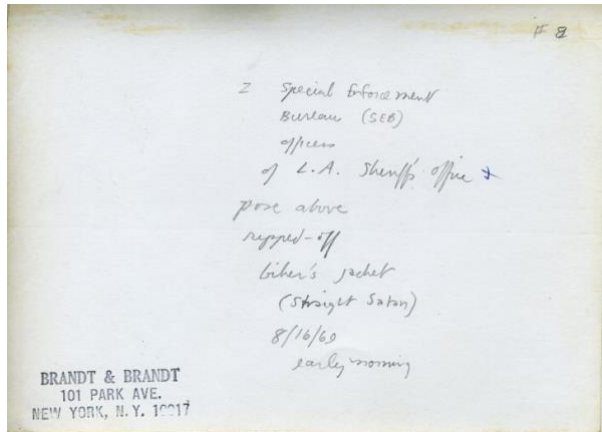 # 8
2 Special Enforcement
Bureau (SEB)
officers
of L.A. Sheriff's office +
pose above
ripped-off
biker's jacket
(Straight Satan)
8/16/69
early morning
BRANDT & BRANDT
101 PARK AVE.
NEW YORK, N.Y. 10017